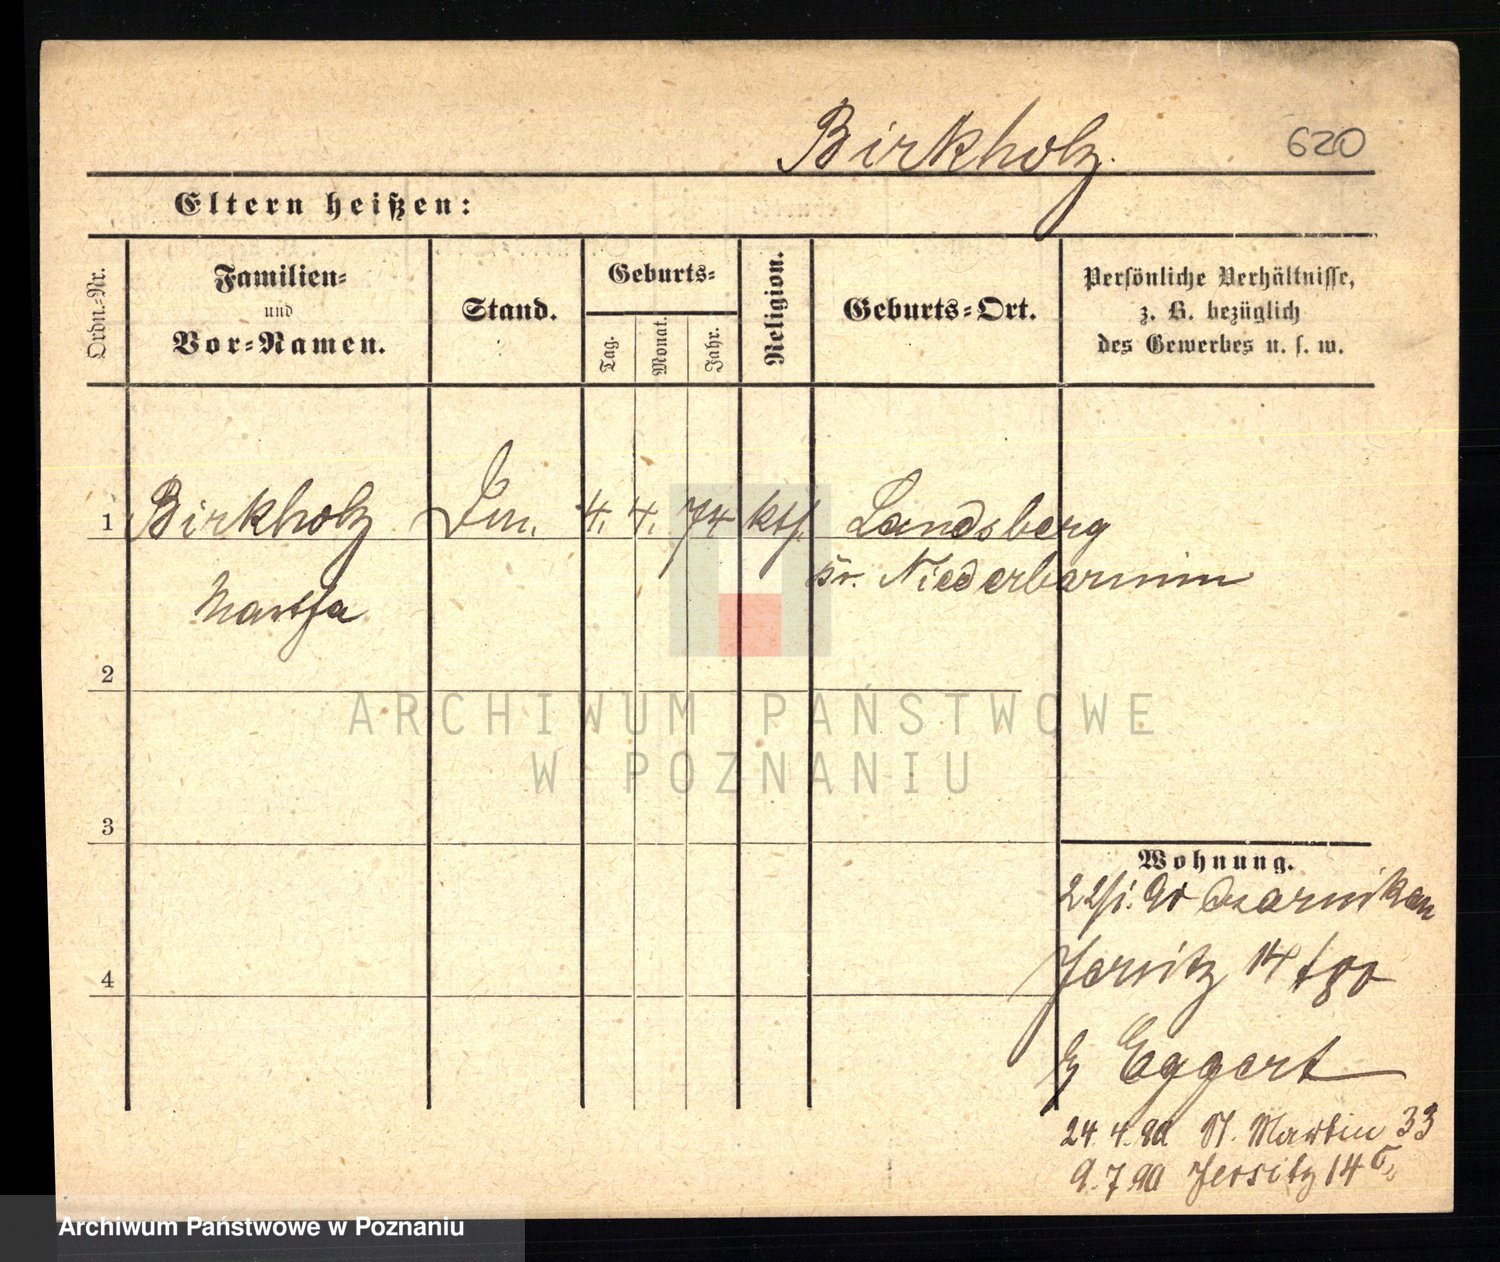 Birkholz.
620
Eltern heißen:
Ordn.-Nr.
Familien-
und
Vor-Namen.
Stand.
Geburts-
Tag.
Monat.
Jahr.
Religion.
Geburts-Ort.
Persönliche Verhältnisse,
z. B. bezüglich
des Gewerbes u. s. w.
1 Birkholz 4. 4. 74 kth. Landsberg
Kr. Niederbarnim
Martha
2
3
4
Wohnung.
22/1. 90 Czarnikau
Jersitz 14
Eggert
24. 4. 90 St. Martin 33
9. 7 90 Jersitz 14
ARCHIWUM PAŃSTWOWE
W POZNANIU
Archiwum Państwowe w Poznaniu